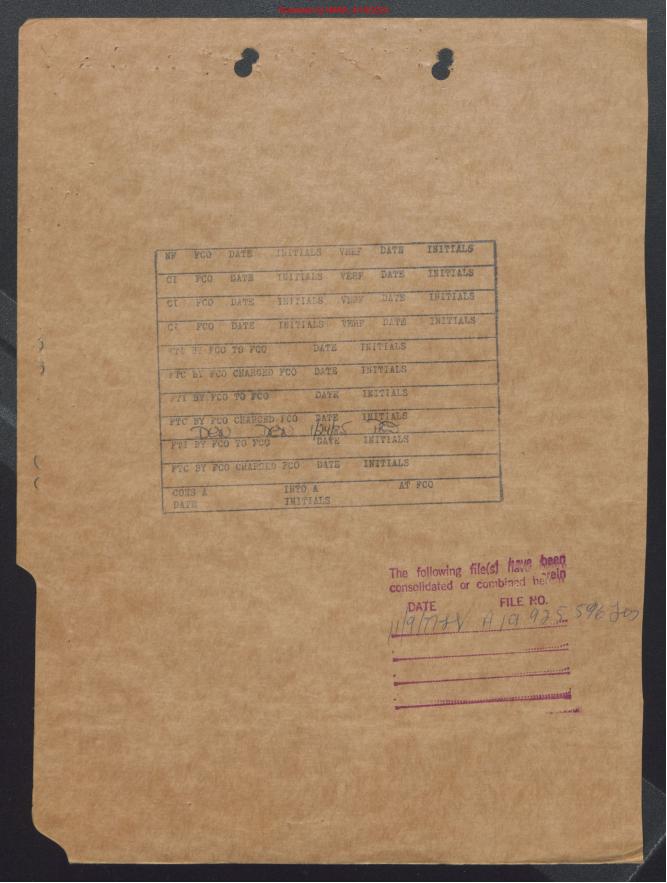 NF FCO DATE INITIALS VERF DATE INITIALS
CI FCO DATE INITIALS VERF DATE INITIALS
CI FCO DATE INITIALS VERF DATE INITIALS
CI FCO DATE INITIALS VERF DATE INITIALS
FTI BY FCO TO FCO DATE INITIALS
FTC BY FCO CHARGED FCO DATE INITIALS
FTI BY FCO TO FCO DATE INITIALS
FTC BY FCO CHARGED FCO DATE INITIALS
DEN DEN 1/24/85
FTI BY FCO TO FCO DATE INITIALS
FTC BY FCO CHARGED FCO DATE INITIALS
CONS A INTO A AT FCO
DATE INITIALS
The following file(s) have been
consolidated or combined herein
DATE FILE NO.
A 19 925 596